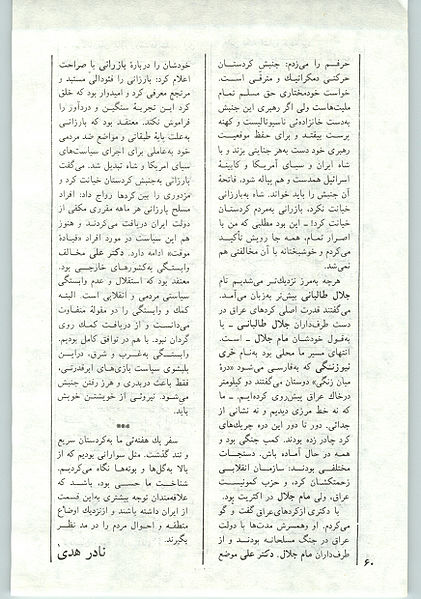 حرفم را می‌زدم: جنبش کردستان
حرکتی دمکراتیک و مترقی است.
خواست خودمختاری حق مسلم تمام
ملیت‌هاست ولی اگر رهبری این جنبش
به‌دست خانزاده‌ئی ناسیونالیست و کهنه
پرست بیفتد و برای حفظ موقعیت
رهبری خود دست به‌هر جنایتی بزند و با
شاه ایران و سیای آمریکا و کابینهٔ
اسرائیل همدست و هم پیاله شود، فاتحهٔ
آن جنبش را باید خواند. شاه به‌بارزانی
خیانت نکرد، بارزانی به‌مردم کردستان
خیانت کرد! ـ این بود مطلبی که من با
اصرار تمام، همه جا رویش تأکید
می‌کردم و خوشبختانه با آن مخالفتی هم
نمی‌شد.
هرچه به‌مرز نزدیک‌تر می‌شدیم نام
جلال طالبانی بیش‌تر به‌زبان می‌آمد.
می‌گفتند قدرت اصلی کردهای عراق در
دست طرف‌داران جلال طالبانی ـ یا
به‌قول خودشان مام جلال ـ است.
انتهای مسیر ما محلی بود به‌نام خری
نیوزنگی که به‌فارسی می‌شود «درهٔ
میان زنگی» دوستان می‌گفتند دو کیلومتر
درخاک عراق پیش‌روی کرده‌ایم. ـ ما
که نه خط مرزی دیدیم و نه نشانی از
جدائی. دور تا دور این دره چریک‌های
کرد چادر زده بودند. کمپ جنگی بود و
همه در حال آماده باش. دستجات
مختلفی بودند: سازمان انقلابی
زحمتکشان کرد، و حزب کمونیست
عراق، ولی مام جلال در اکثریت بود.
با دکتری ازکردهای‌عراق گفت و گو
می‌کردم. او وهمسرش مدت‌ها با دولت
عراق در جنگ مسلحانه بودند و از
طرف‌داران مام جلال. دکتر علی موضع
خودشان را دربارهٔ بارزانی با صراحت
اعلام کرد: بارزانی را فئودالی مستبد و
مرتجع معرفی کرد و امیدوار بود که خلق
کرد این تجربهٔ سنگین و دردآور را
فراموش نکند. معتقد بود که بارزانی
به‌علت پایهٔ طبقاتی و مواضع ضد مردمی
خود به‌عاملی برای اجرای سیاست‌های
سیای آمریکا و شاه تبدیل شد. می‌گفت
بارزانی به‌جنبش کردستان خیانت کرد و
مزدوری را بین کردها رواج داد: افراد
مسلح بارزانی هر ماهه مقرری مکفی از
دولت ایران دریافت می‌کردند و هنوز
هم این سیاست در مورد افراد «قیادهٔ
موقت» ادامه دارد. دکتر علی مخالف
وابستگی به‌کشورهای خارجی بود.
معتقد بود که استقلال و عدم وابستگی
سیاستی مردمی و انقلابی است. البته
کمک و وابستگی را دو مقولهٔ متفاوت
می‌دانست و از دریافت کمک روی
گردان نبود. با هم در توافق کامل بودیم.
وابستگی به‌غرب و شرق، دراین
بلبشوی سیاست بازی‌های ابرقدرتی،
فقط باعث دربدری و هرز رفتن جنبش
می‌شود. نیروئی از خویشتن خویش
باید.
***
سفر یک هفته‌ئی ما به‌کردستان سریع
و تند گذشت. مثل سوارانی بودیم که از
بالا به‌گل‌ها و بوته‌ها نگاه می‌کردیم.
شناخت ما حسی بود، باشد که
علاقه‌مندان توجه بیشتری به‌این قسمت
از ایران داشته باشند و ازنزدیک اوضاع
منطقه و احوال مردم را در مد نظر
بگیرند.
نادر هدی
۶۰